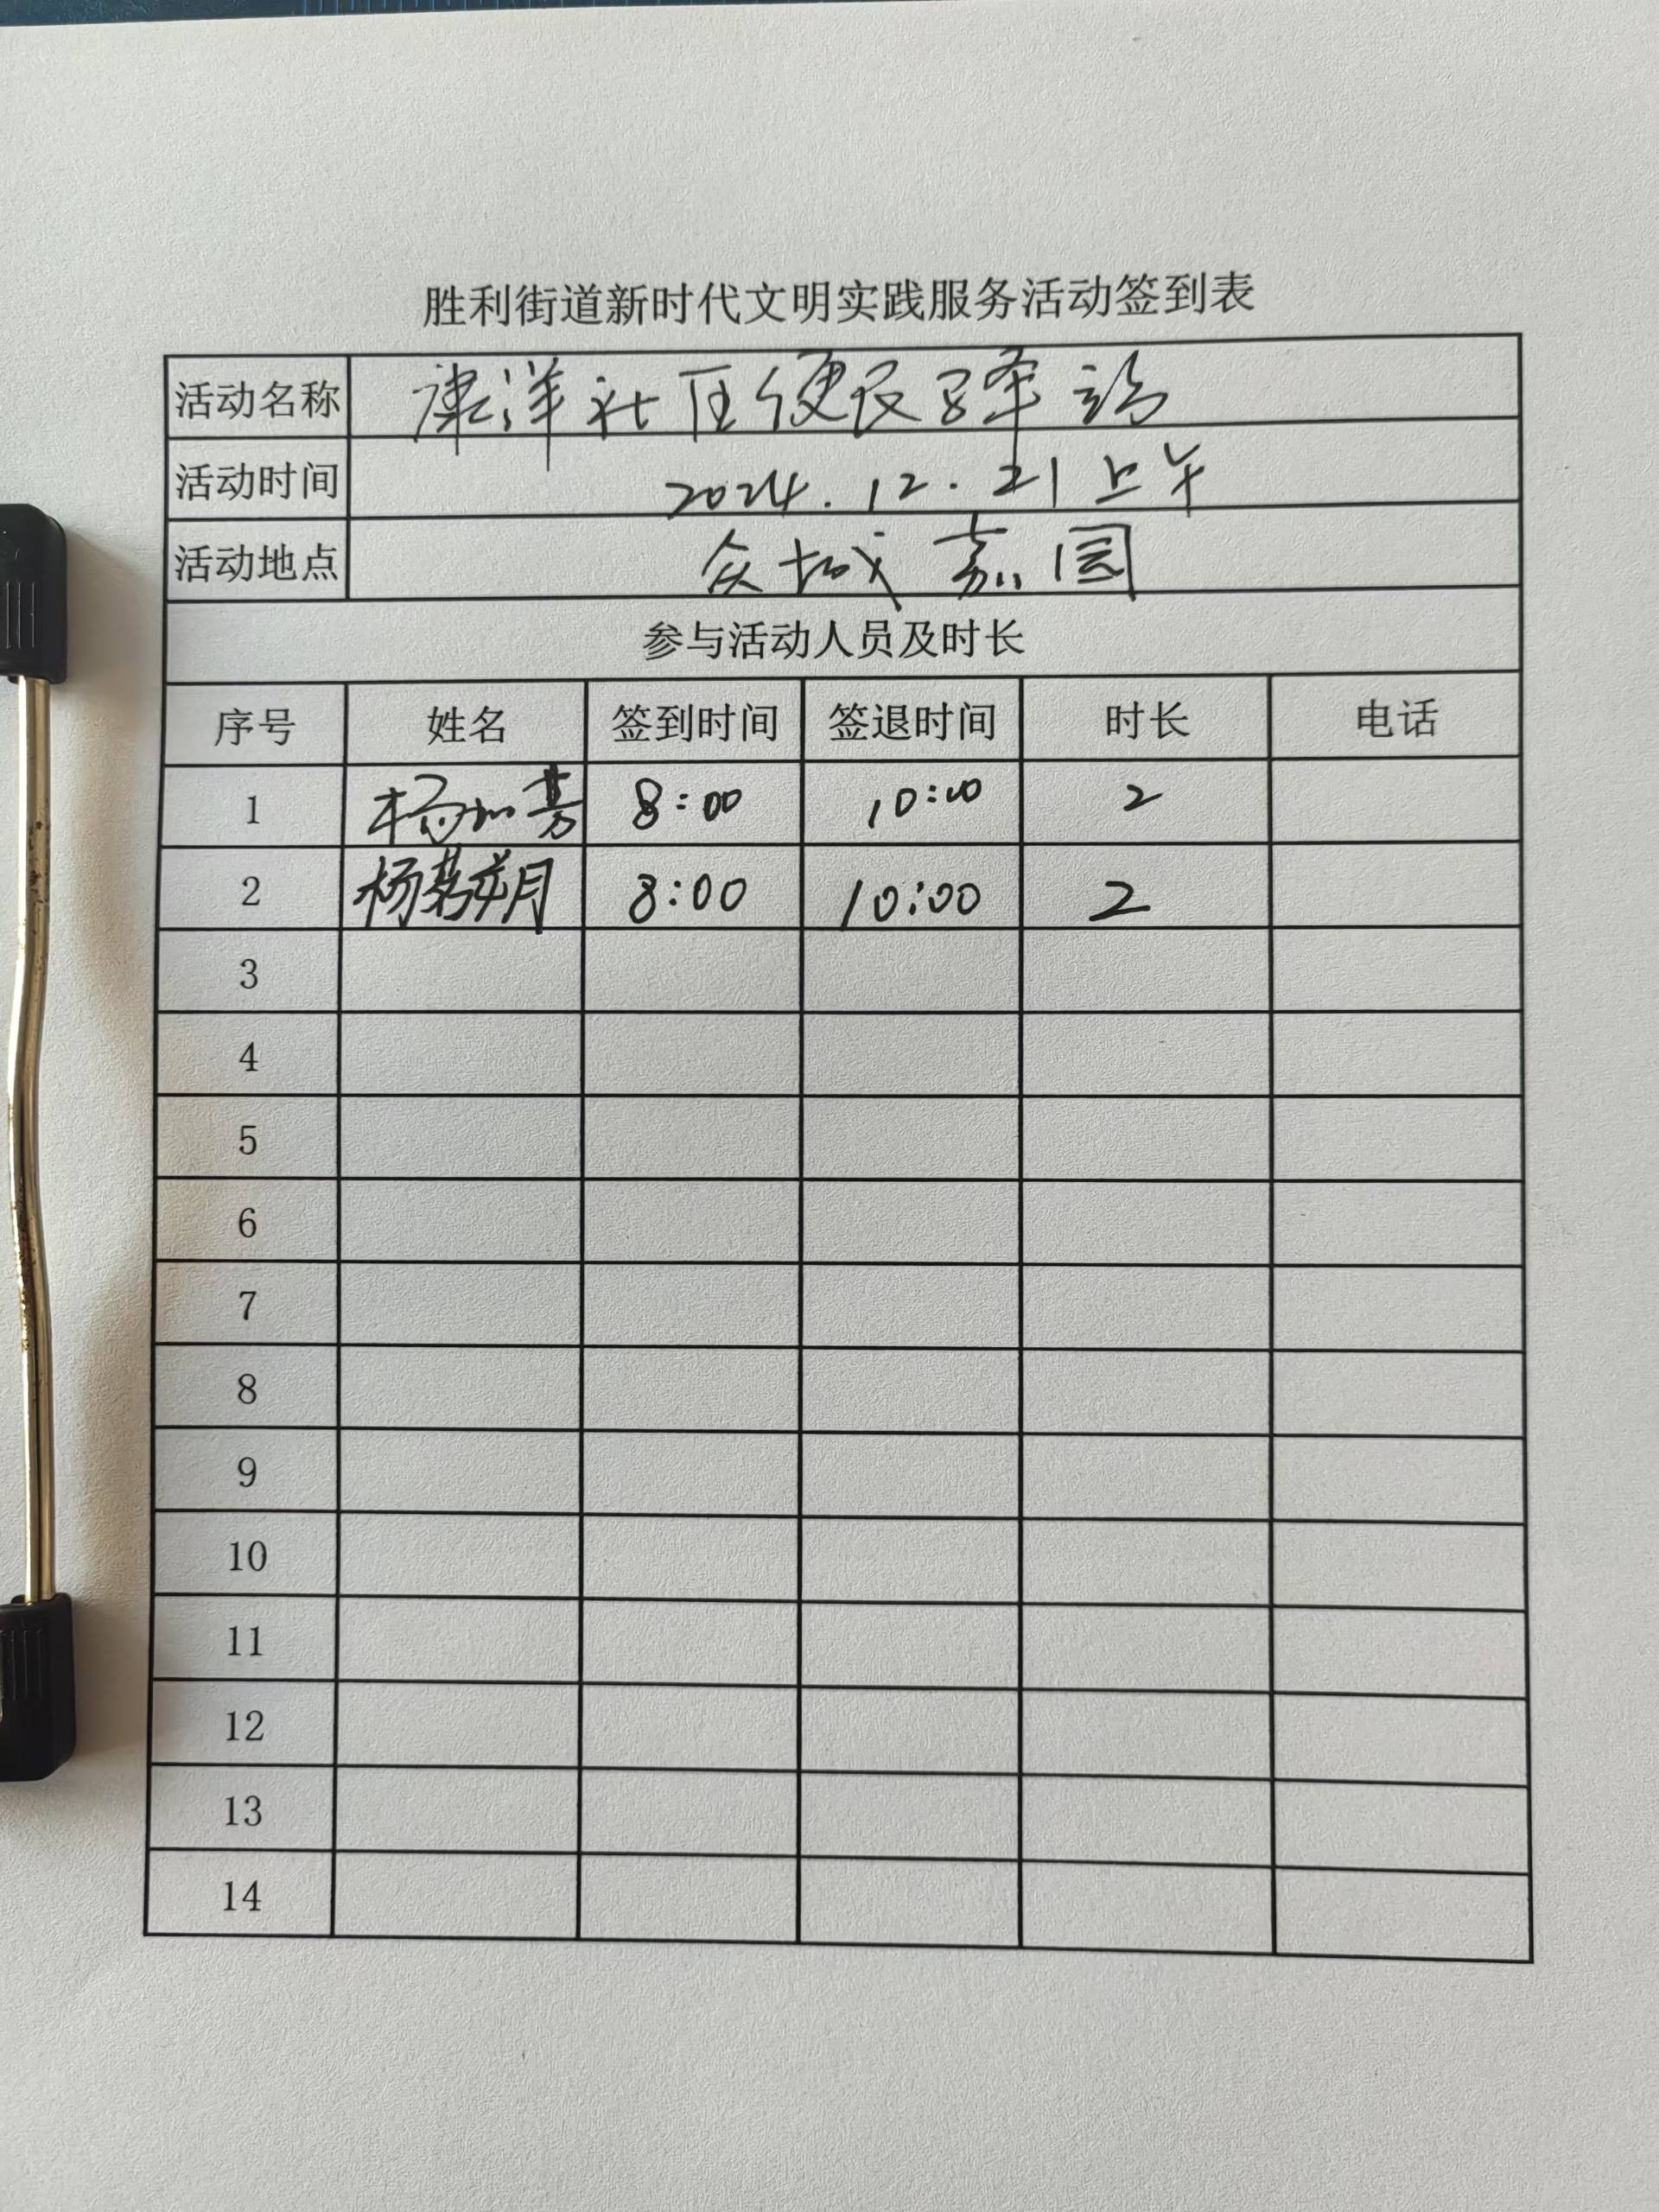 胜利街道新时代文明实践服务活动签到表
活动名称 康洋社区便民驿站
活动时间 2024.12.21上午
活动地点 众城嘉园
参与活动人员及时长
序号 姓名 签到时间 签退时间 时长 电话
1 杨 8:00 10:00 2
2 杨 8:00 10:00 2
3
4
5
6
7
8
9
10
11
12
13
14